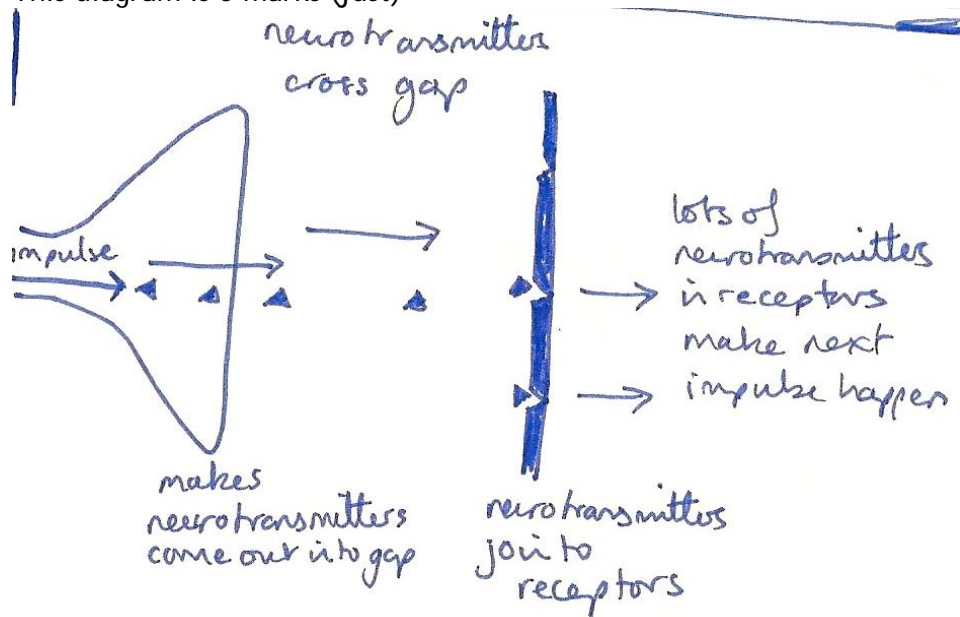 This diagram is 5 marks (just)
neurotransmitters
cross gap
impulse
lots of
neurotransmitters
in receptors
make next
impulse happen
makes
neurotransmitters
come out into gap
neurotransmitters
join to
receptors